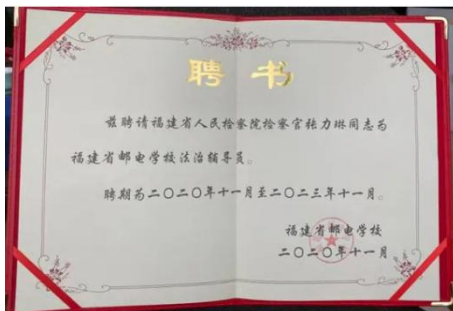 聘书
兹聘请福建省人民检察院检察官张力琳同志为
福建省邮电学校法治辅导员。
聘期为二〇二〇年十一月至二〇二三年十一月。
福建省邮电学校
二〇二〇年十一月